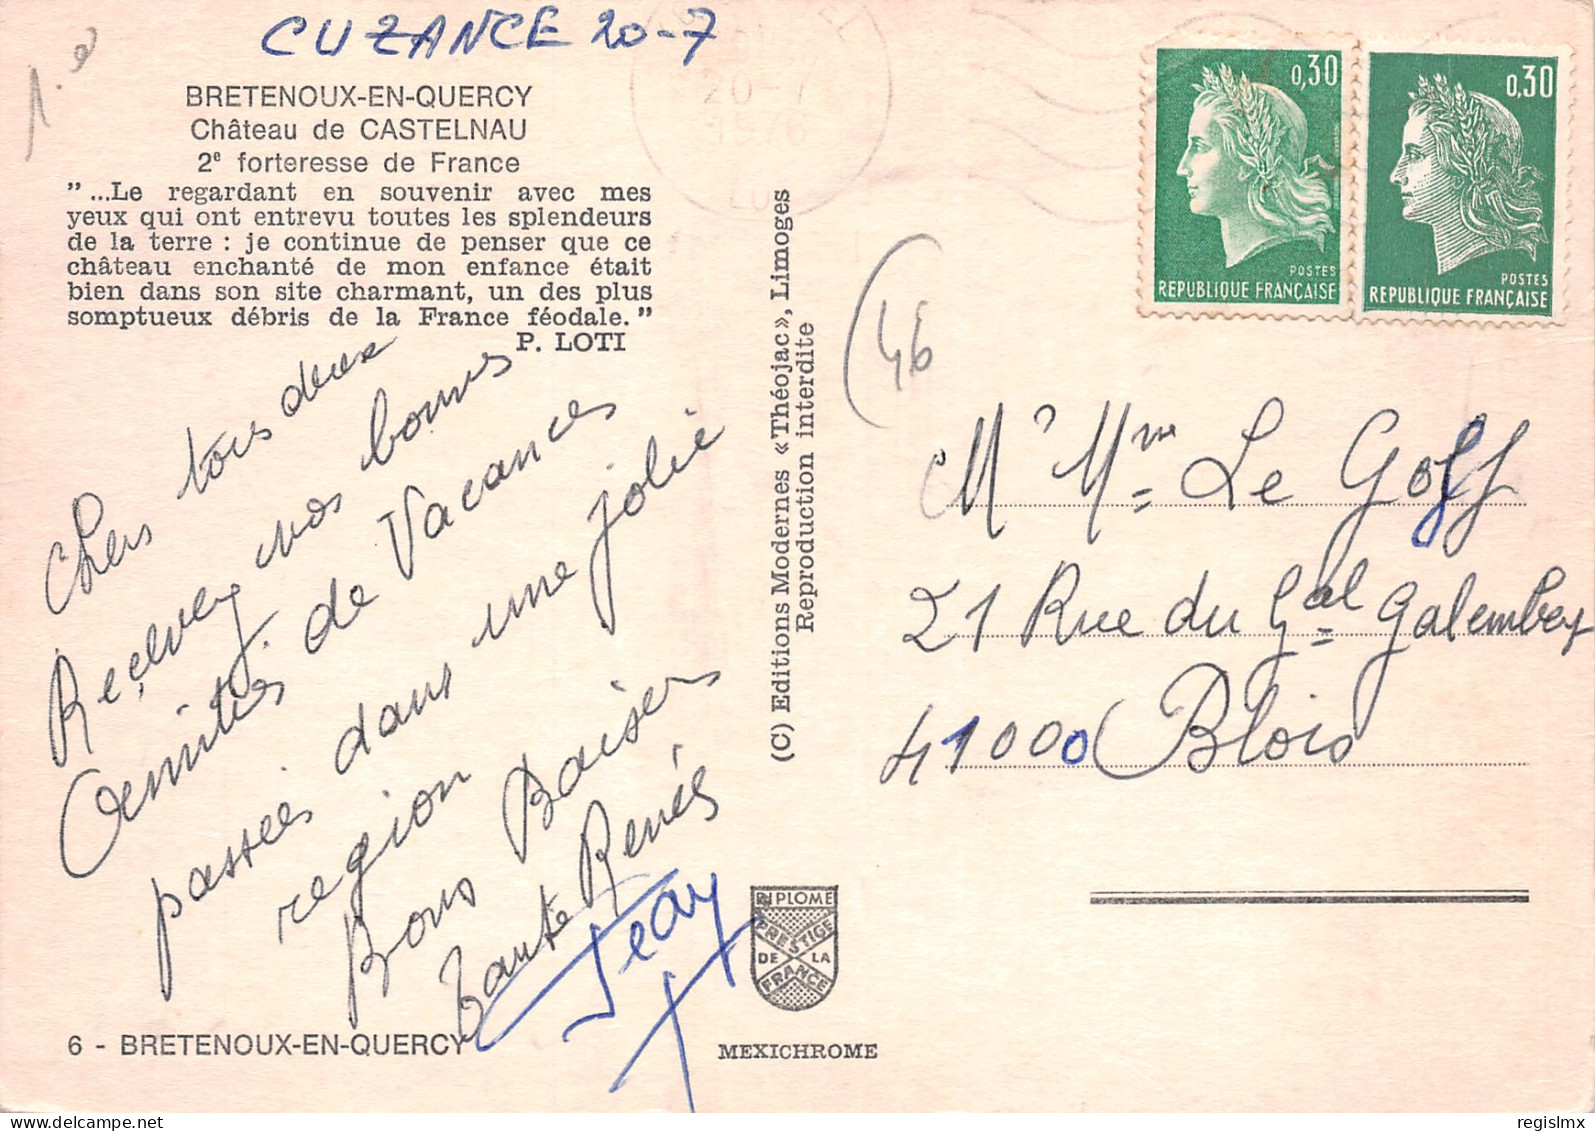 CUZANCE 20-7
1.e
BRETENOUX-EN-QUERCY
Château de CASTELNAU
2e forteresse de France
"...Le regardant en souvenir avec mes
yeux qui ont entrevu toutes les splendeurs
de la terre : je continue de penser que ce
château enchanté de mon enfance était
bien dans son site charmant, un des plus
somptueux débris de la France féodale."
P. LOTI
Chers tous deux
Recevez nos bonnes
Amitiés de Vacances
passées dans une jolie
region
Bons Baisers
Tante Renée
Jean
6 - BRETENOUX-EN-QUERCY
(C) Editions Modernes «Théojac», Limoges
Reproduction interdite
DIPLOME
PRESTIGE
DE LA
FRANCE
MEXICHROME
20-7
1976
LOT
0,30
POSTES
REPUBLIQUE FRANÇAISE
0,30
POSTES
REPUBLIQUE FRANÇAISE
(46
M. Mme Le Goff
21 Rue du Gal Galembey
41000 Blois
regislmx